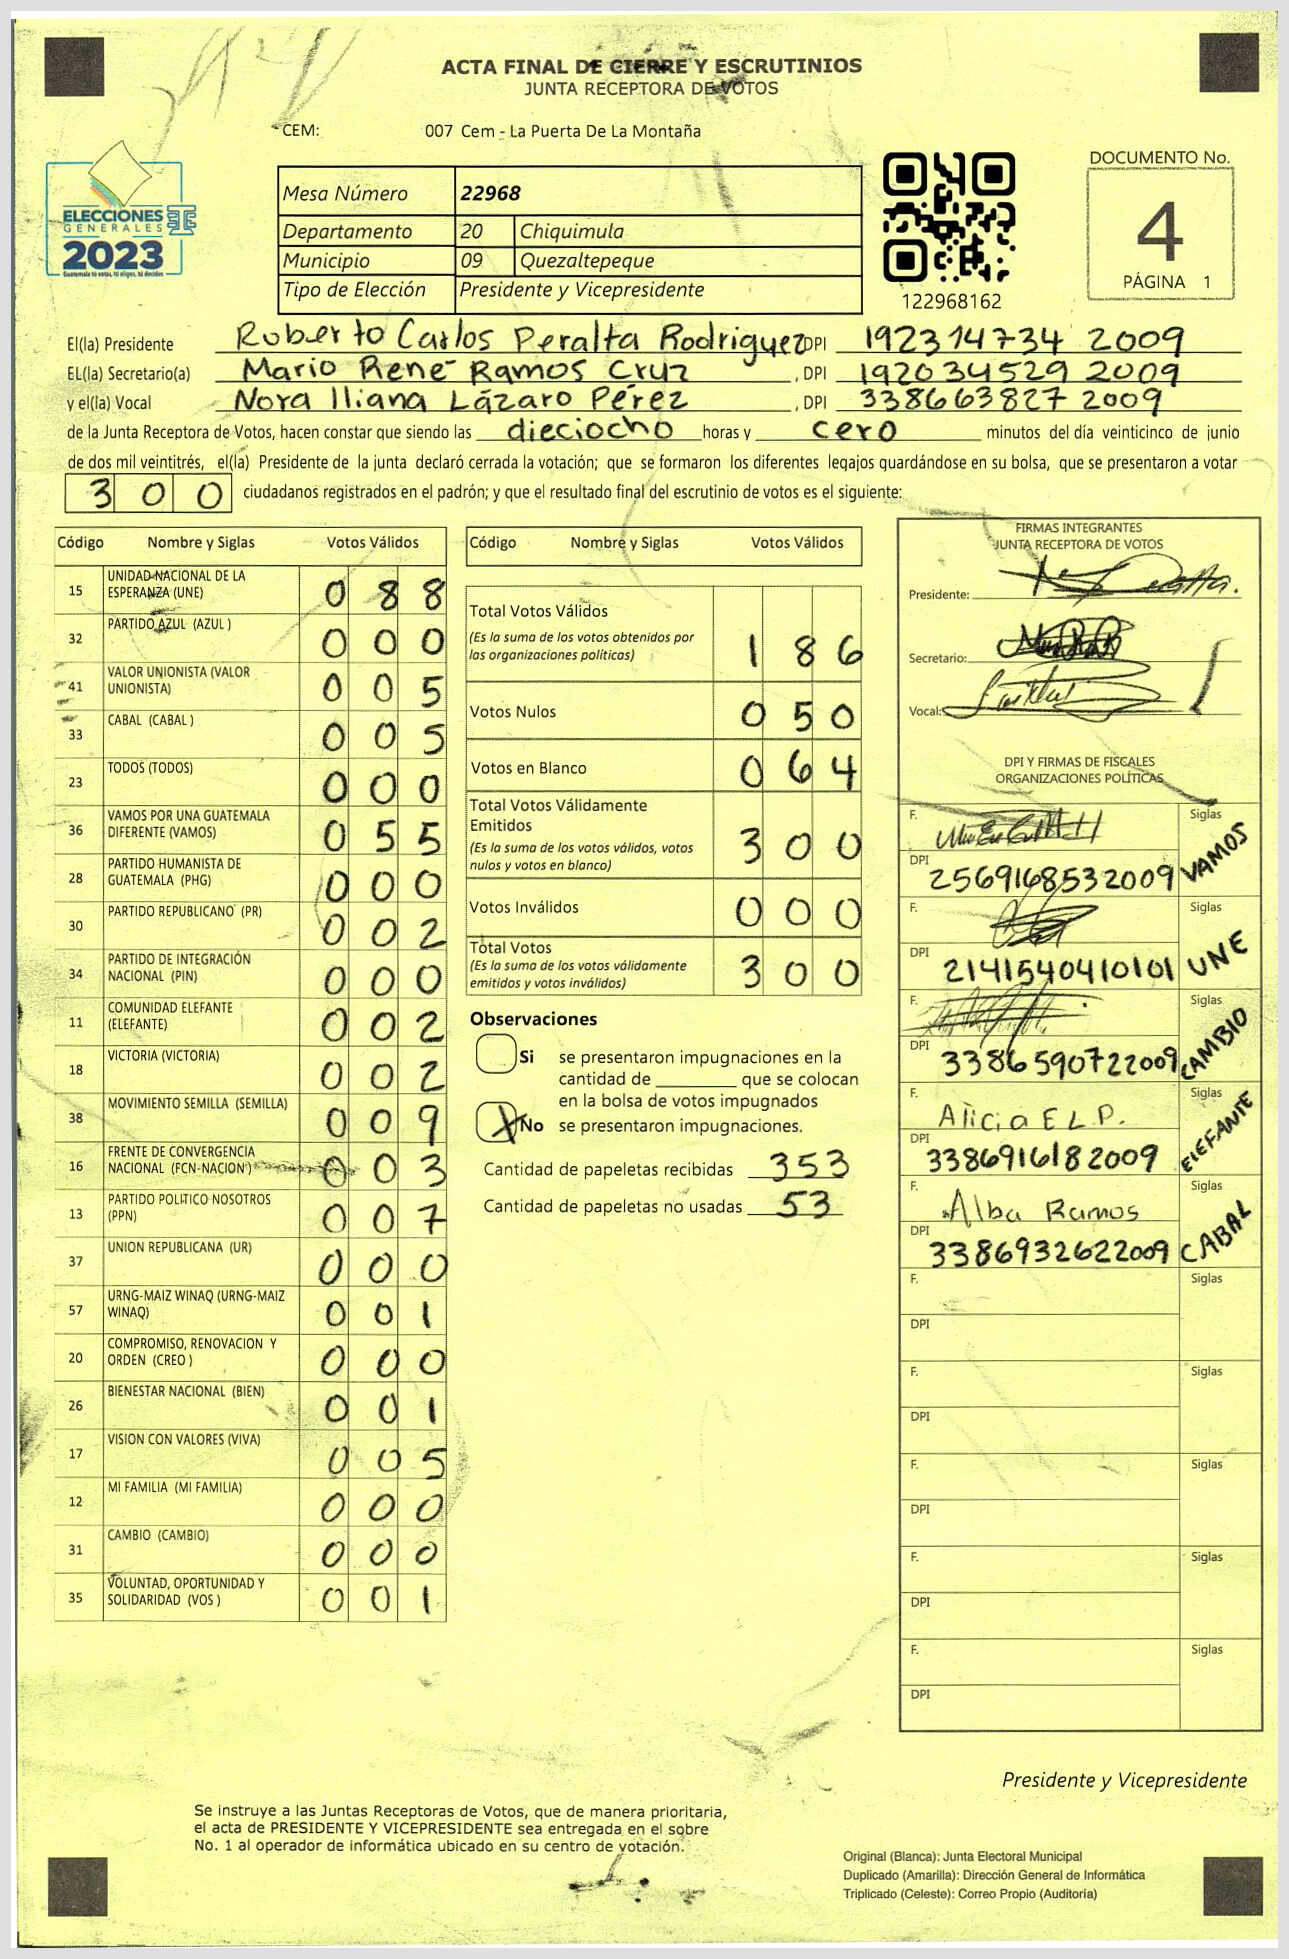 ACTA FINAL DE CIERRE Y ESCRUTINIOS
JUNTA RECEPTORA DE VOTOS
CEM: 007 Cem - La Puerta De La Montaña
ELECCIONES
GENERALES
2023
Guatemala tú votas, tú eliges, tú decides
Mesa Número 22968
Departamento 20 Chiquimula
Municipio 09 Quezaltepeque
Tipo de Elección Presidente y Vicepresidente
122968162
DOCUMENTO No.
4
PÁGINA 1
El(la) Presidente Roberto Carlos Peralta Rodriguez DPI 192314734 2009
EL(la) Secretario(a) Mario René Ramos Cruz , DPI 192034529 2009
y el(la) Vocal Nora Iliana Lázaro Pérez , DPI 338663827 2009
de la Junta Receptora de Votos, hacen constar que siendo las dieciocho horas y cero minutos del día veinticinco de junio
de dos mil veintitrés, el(la) Presidente de la junta declaró cerrada la votación; que se formaron los diferentes legajos guardándose en su bolsa, que se presentaron a votar
300 ciudadanos registrados en el padrón; y que el resultado final del escrutinio de votos es el siguiente:
Código Nombre y Siglas Votos Válidos
15 UNIDAD NACIONAL DE LA
ESPERANZA (UNE) 088
32 PARTIDO AZUL (AZUL ) 000
41 VALOR UNIONISTA (VALOR
UNIONISTA) 005
33 CABAL (CABAL ) 005
23 TODOS (TODOS) 000
36 VAMOS POR UNA GUATEMALA
DIFERENTE (VAMOS) 055
28 PARTIDO HUMANISTA DE
GUATEMALA (PHG) 000
30 PARTIDO REPUBLICANO (PR) 002
34 PARTIDO DE INTEGRACIÓN
NACIONAL (PIN) 000
11 COMUNIDAD ELEFANTE
(ELEFANTE) 002
18 VICTORIA (VICTORIA) 002
38 MOVIMIENTO SEMILLA (SEMILLA) 009
16 FRENTE DE CONVERGENCIA
NACIONAL (FCN-NACION) 003
13 PARTIDO POLITICO NOSOTROS
(PPN) 007
37 UNION REPUBLICANA (UR) 000
57 URNG-MAIZ WINAQ (URNG-MAIZ
WINAQ) 001
20 COMPROMISO, RENOVACION Y
ORDEN (CREO ) 000
26 BIENESTAR NACIONAL (BIEN) 001
17 VISION CON VALORES (VIVA) 005
12 MI FAMILIA (MI FAMILIA) 000
31 CAMBIO (CAMBIO) 000
35 VOLUNTAD, OPORTUNIDAD Y
SOLIDARIDAD (VOS ) 001
Código Nombre y Siglas Votos Válidos
Total Votos Válidos
(Es la suma de los votos obtenidos por
las organizaciones políticas) 186
Votos Nulos 050
Votos en Blanco 064
Total Votos Válidamente
Emitidos
(Es la suma de los votos válidos, votos
nulos y votos en blanco) 300
Votos Inválidos 000
Total Votos
(Es la suma de los votos válidamente
emitidos y votos inválidos) 300
Observaciones
Si se presentaron impugnaciones en la
cantidad de ________ que se colocan
en la bolsa de votos impugnados
X No se presentaron impugnaciones.
Cantidad de papeletas recibidas 353
Cantidad de papeletas no usadas 53
FIRMAS INTEGRANTES
JUNTA RECEPTORA DE VOTOS
Presidente:
Secretario:
Vocal:
DPI Y FIRMAS DE FISCALES
ORGANIZACIONES POLÍTICAS
F. Siglas VAMOS
DPI 2569168532009
F. Siglas UNE
DPI 2141540410101
F. Siglas CAMBIO
DPI 3386590722009
F. Alicia E L P. Siglas ElEFANTE
DPI 3386916182009
F. Alba Ramos Siglas CABAL
DPI 3386932622009
F. Siglas
DPI
F. Siglas
DPI
F. Siglas
DPI
F. Siglas
DPI
F. Siglas
DPI
Presidente y Vicepresidente
Se instruye a las Juntas Receptoras de Votos, que de manera prioritaria,
el acta de PRESIDENTE Y VICEPRESIDENTE sea entregada en el sobre
No. 1 al operador de informática ubicado en su centro de votación.
Original (Blanca): Junta Electoral Municipal
Duplicado (Amarilla): Dirección General de Informática
Triplicado (Celeste): Correo Propio (Auditoría)